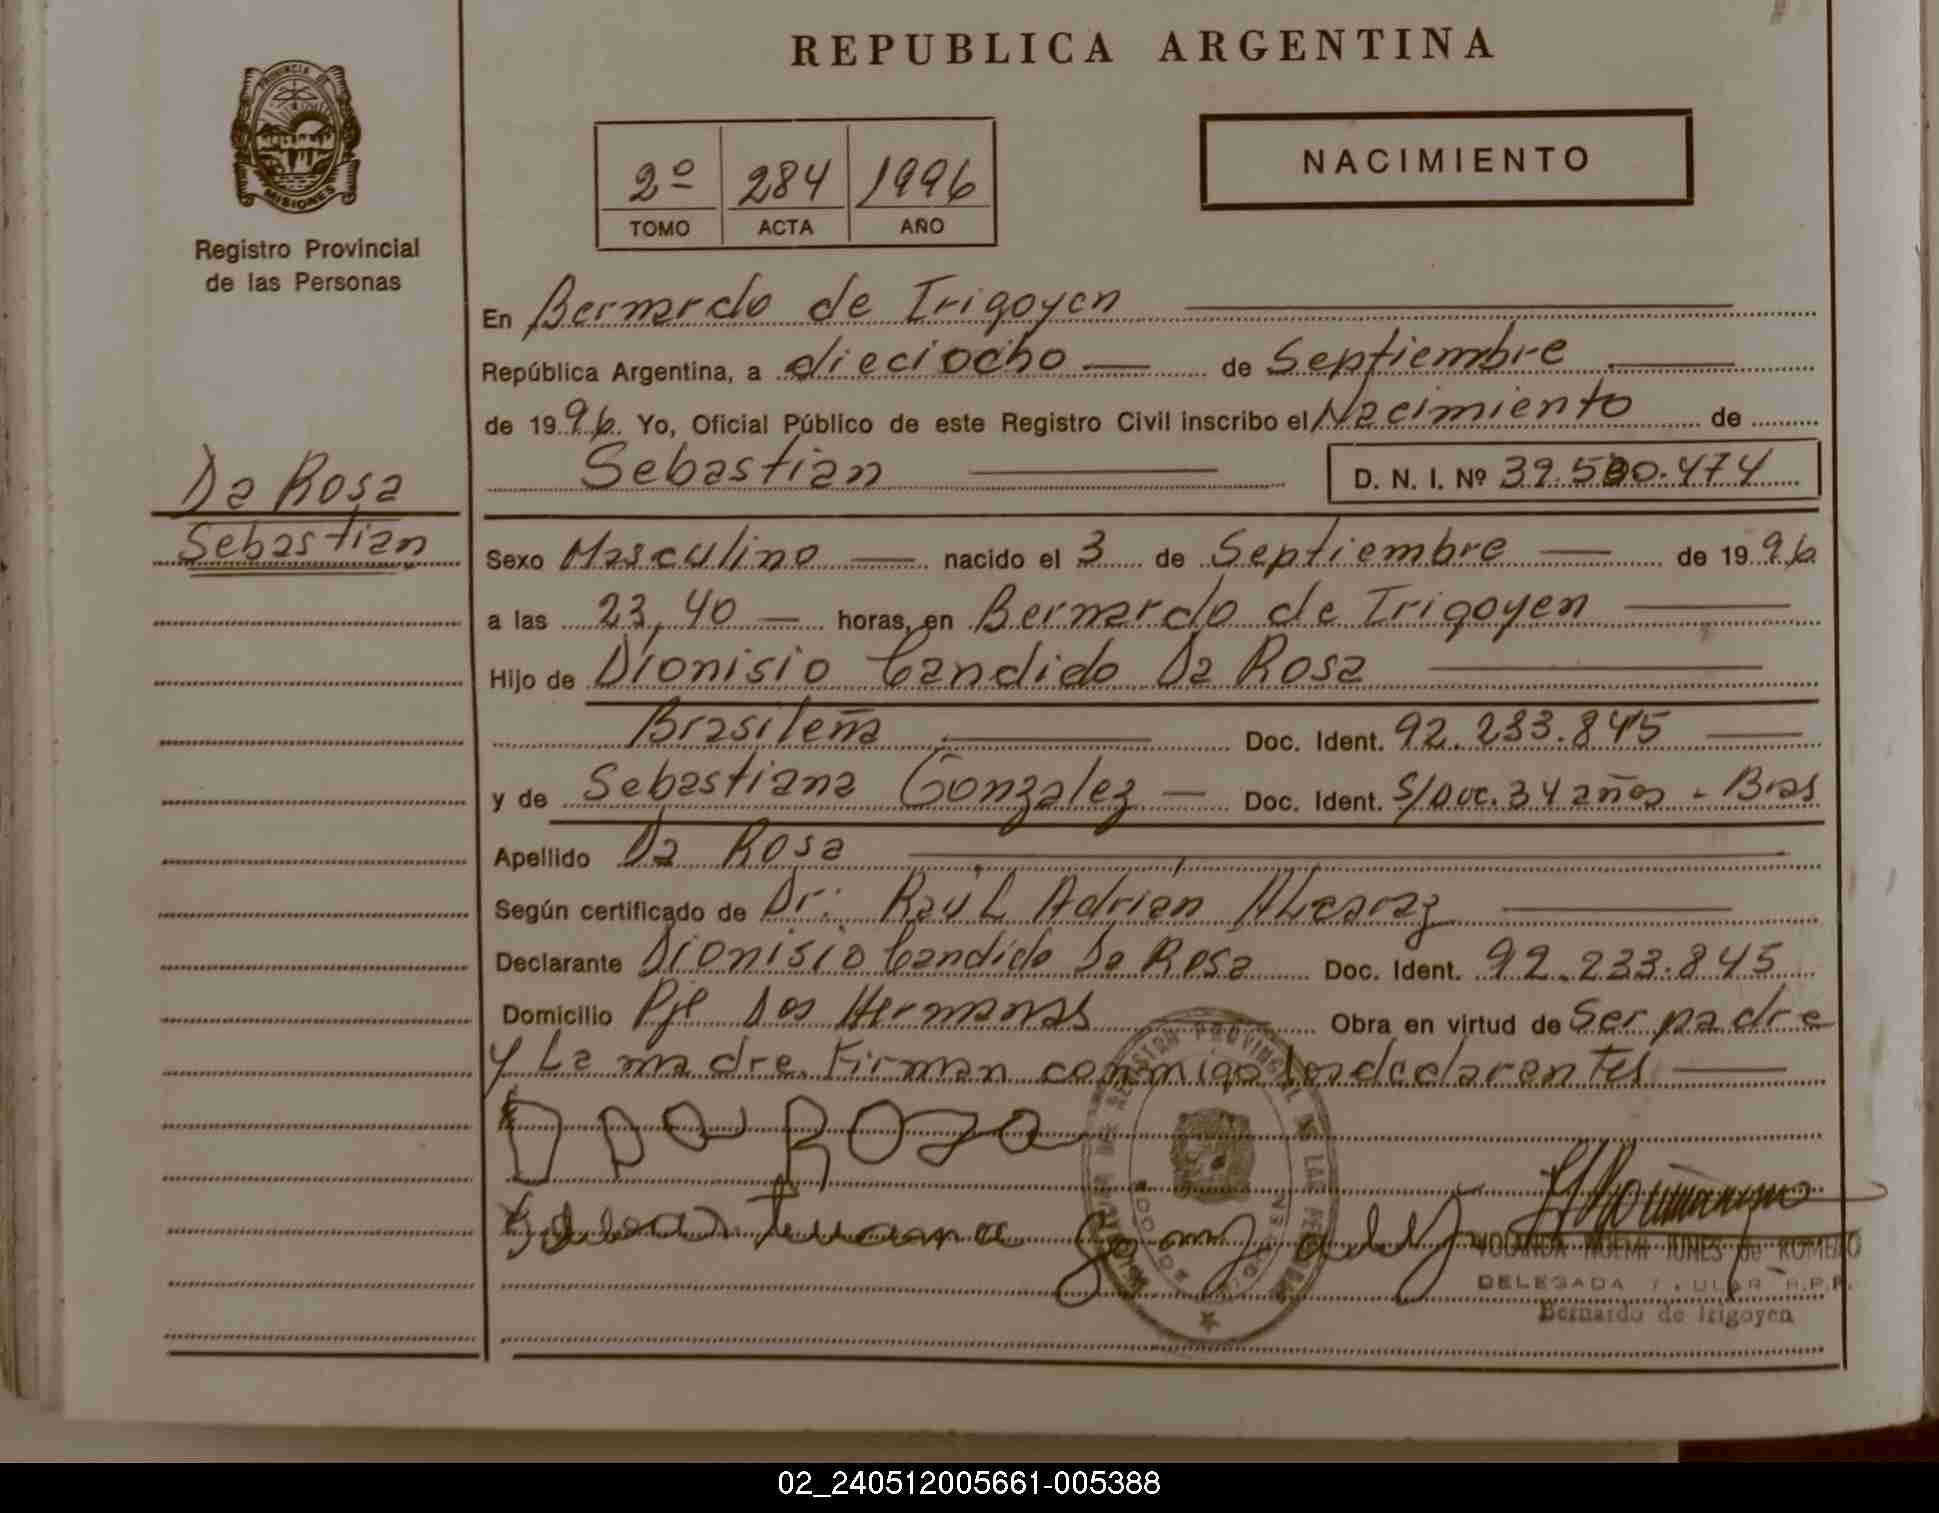 REPUBLICA ARGENTINA
PROVINCIA DE
MISIONES
Registro Provincial
de las Personas
2º 284 1996
TOMO ACTA AÑO
NACIMIENTO
En Bernardo de Irigoyen
República Argentina, a dieciocho de Septiembre
de 1996 Yo, Oficial Público de este Registro Civil inscribo el Nacimiento de
Sebastian D. N. I. Nº 39.500.474
Da Rosa
Sebastian
Sexo Masculino nacido el 3 de Septiembre de 1996
a las 23,40 horas, en Bernardo de Irigoyen
Hijo de Dionisio Candido Da Rosa
Brasileña Doc. Ident. 92.233.845
y de Sebastiana Gonzalez Doc. Ident. S/Doc. 34 años - Bras
Apellido Da Rosa
Según certificado de Dr: Raúl Adrián Alcaraz
Declarante Dionisio Candido Da Rosa Doc. Ident. 92.233.845
Domicilio Pje Dos Hermanas Obra en virtud de Ser padre
y La madre. Firman conmigo los declarantes
D DA ROZA
Sebastiana Gonzalez
YOLANDA NOEMI JUNES de ROMERO
DELEGADA TITULAR R.P.P.
Bernardo de Irigoyen
02_240512005661-005388